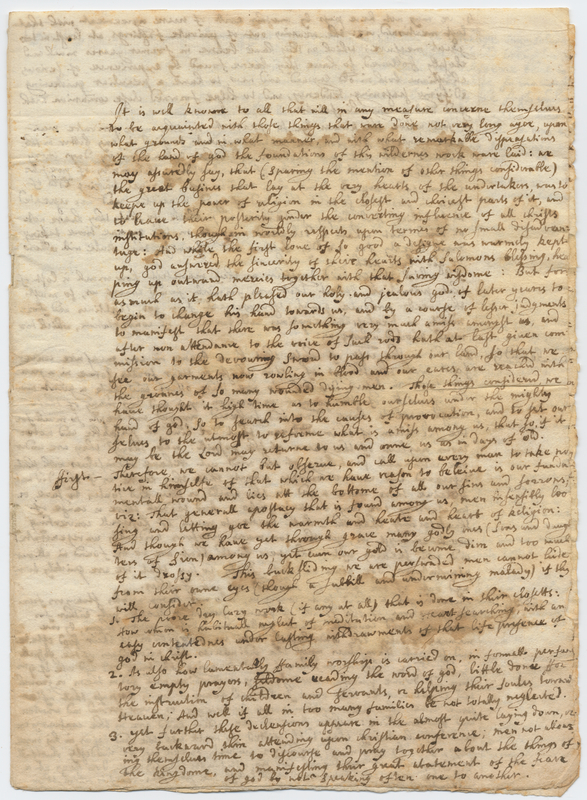 It is well knowne to all that will in any measure concerne themselves
to be acquainted with those things that were done not very long agoe, upon
what grounds and in what manner, and with what remarkable dispensations
of the hand of god the foundations of this wildernes work were laid: we
may assuredly say, that (sparing the mention of other things considerable)
the great busines that lay at the very hearts of the undertakers was to
keepe up the power of religion in the closest and chiefest parts of it, and
to leave their posterity under the converting influence of all christs
institutions, though in worldly respects upon termes of no small disadvan
tage: And while the first love of so good a designe was warmely kept
up, god answered the sincerity of their hearts with Salomons blessing, he
ping up outward mercies together with that saving wisdome: But for
asmuch as it hath pleased our holy and jealous god of later yeares to
begin to change his hand towards us, and by a course of lesser Judgments
to manifest that there was something very much amiss amongst us, and
after non attendance to the voice of such rods hath at last given com
mission to the devouring sword to pass through our land, so that we
see our garments now rowling in blood and our eares are reached with
the groanes of so many wounded dying men. These things considered we
have thought it high time as to humble ourselves under the mighty
hand of god, so to search into the causes of provocation, and to set our
selves to the utmost to reforme what is amiss among us, that so if it
may be the Lord may returne to us and owne us as in days of old.
first Therefore, we cannot but observe, and call upon every man to take no
tice in himselfe of that which we have reason to beleive is our funda
mentall wound and lies att the bottome of all our sins and sorrows
viz: That generall apostacy that is found among us, men insensibly loo
sing and letting goe the warmth and heate and heart of religion:
And though we have yet through grace many godly ones (sons and daugh
ters of Sion) among us; yet even our gold is become dim and too much
of it drossy. This backsliding we are perswaded men cannot hide
from their owne eyes (though a subtill and undermining malady) if they
will consider.
1. The poore dry lazy work (if any at all) that is done in their closetts:
how when is habituall neglect of meditation and heart searching, with an
easy contentednes under lasting withdrawments of that life presence of
god in christ.
2. As also how lamentably ffamily worship is carried on, in formall perfunc
tory empty prayers, seldome reading the word of god, little donne for
the instruction of children and servants, or helping their soules toward
heaven, And well if all in too many families be not totally neglected.
3. yet further these declensions appeare in the almost quite laying down, or
very backward thin attending upon christian conference; men not allow
ing themselves time to discourse and pray together about the things of
the kingdome, and manifesting their great abatement of the feare
of god by not speaking often one to another.